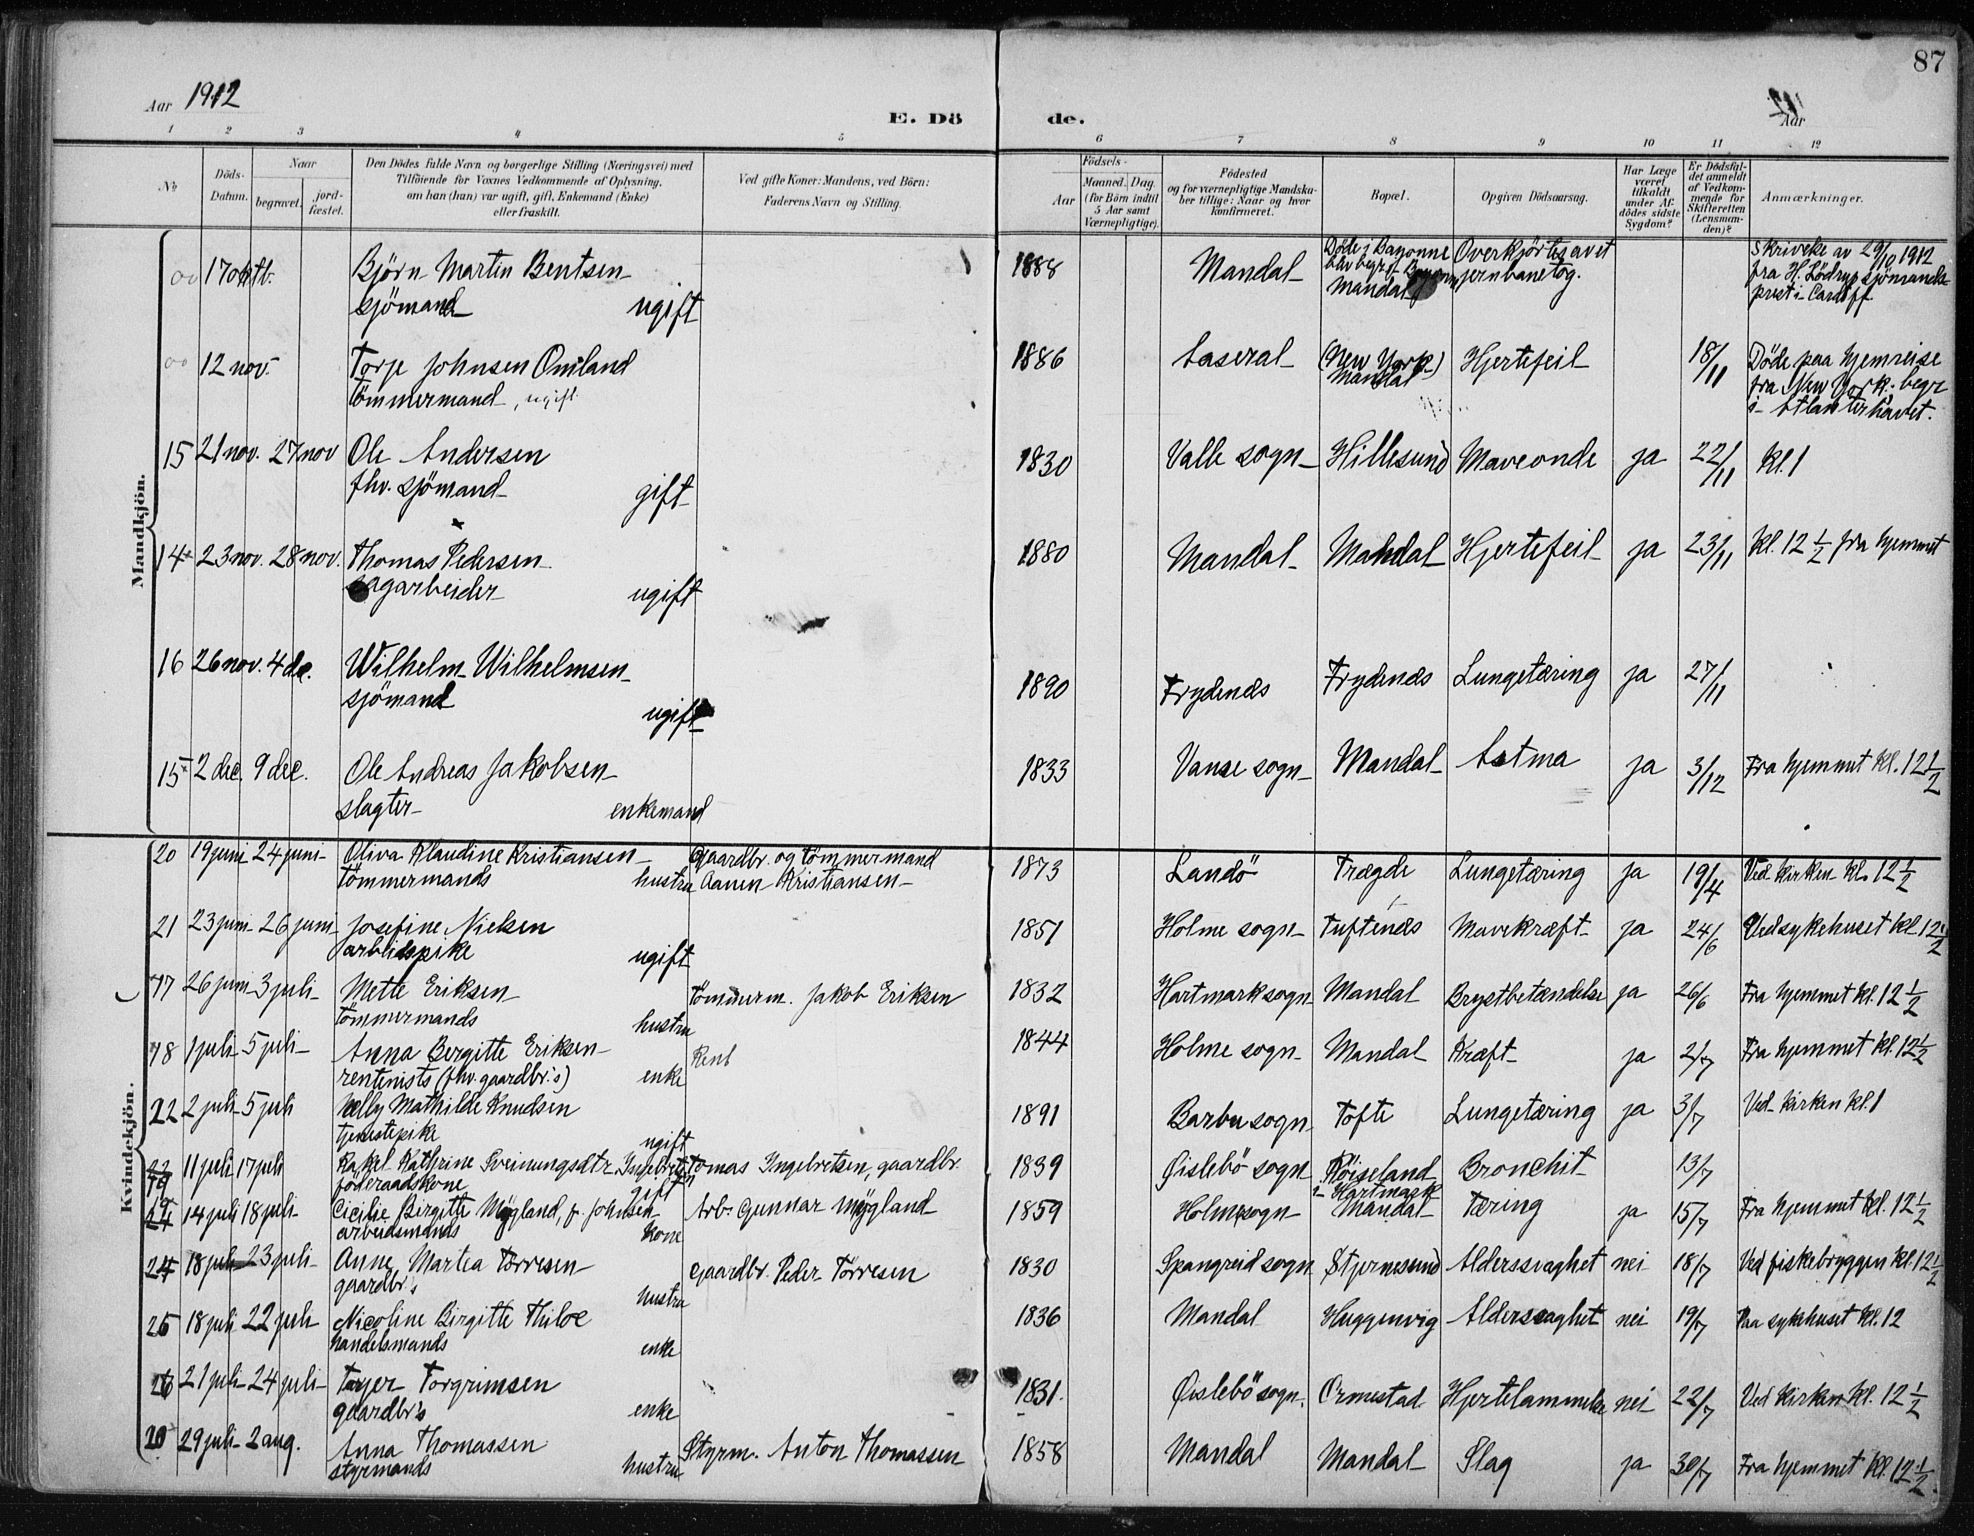 87
Aar 1912
E. Dö de.
Aar
1 2 3 4 5 6 7 8 9 10 11 12
No
Döds-Datum.
Naar begravet. jord-fæstet.
Den Dödes fulde Navn og borgerlige Stilling (Næringsvei) med
Tilföiende for Voxnes Vedkommende af Oplysning,
om han (hun) var ugift, gift, Enkemand (Enke)
eller fraskilt.
Ved gifte Koner: Mandens, ved Börn:
Faderens Navn og Stilling.
Födsels-
Aar Maaned. Dag.
(for Börn indtil
5 Aar samt
Værnepligtige).
Födested
og for værnepligtige Mandska-
ber tillige: Naar og hvor
konfirmeret.
Bopæl.
Opgiven Dödsaarsag.
Har Læge
været
tilkaldt
under Af-
dödes sidste
Sygdom?
Er Dödsfal-
det anmeldt
af Vedkom-
mende for
Skifteretten
(Lensman-
den)?
Anmærkninger.
Mandkjön.
17 oktb. Björn Martin Bentsen 1888 Mandal Döde i Bayonne Overkjört av et Skrivelse av 29/10 1912
blev begr. i jernbanetog. fra H. Lödrup sjömands-
sjömand ugift Mandal prest i Cardiff
12 nov. Torje Johnsen Omland 1886 Aaseral (New York) Hjertefeil 18/11 Döde paa hjemreise
tömmermand, ugift Mandal fra New York; begr
i Atlanterhavet.
15 21 nov. 27 nov Ole Andersen 1830 Valle sogn Hillesund Maveonde ja 22/11 kl. 1
fhv. sjömand gift
14 23 nov. 28 nov. Thomas Pedersen 1880 Mandal Mandal Hjertefeil ja 23/11 kl. 12 1/2 fra hjemmet
sagarbeider ugift
16 26 nov. 4 dec. Wilhelm Wilhelmsen 1890 Frydenæs Frydenæs Lungetæring ja 27/11
sjömand ugift
15 2 dec. 9 dec. Ole Andreas Jakobsen 1833 Vanse sogn Mandal Astma ja 3/12 Fra hjemmet kl. 12 1/2
slagter enkemand
Kvindekjön.
20 19 juni 24 juni Oliva Klaudine Kristiansen Gaardbr. og tömmermand 1873 Landö Trægde Lungetæring ja 19/4 Ved kirken kl. 12 1/2
tömmermands hustru Aanen Kristiansen
21 23 juni 26 juni Josefine Nielsen 1851 Holme sogn Tuftenæs Mavekræft ja 24/6 Ved sykehuset kl. 12 1/2
arbeidspike ugift
17 26 juni 3 juli Mette Eriksen Tömmerm. Jakob Eriksen 1832 Hartmark sogn Mandal Brystbetændelse ja 26/6 Fra hjemmet kl. 12 1/2
tömmermands hustru
18 1 juli 5 juli Anna Bergitte Eriksen Rent 1844 Holme sogn Mandal Kræft ja 2/7 Fra hjemmet kl. 12 1/2
rentenists (fhv. gaardbr.s) enke
22 2 juli 5 juli Nelly Mathilde Knudsen 1891 Barbu sogn Tofte Lungetæring ja 3/7 Ved kirken kl. 1
tjenestepike ugift
23 11 juli 17 juli Rakel Kathrine Sveinungsdtr. Ingebretsen Tomas Ingebretsen, gaardbr. 1839 Øislebö sogn Röiseland Bronchit 13/7
föderaadskone gift i Hartmark
19 14 juli 18 juli Cicilie Birgitte Mögland, f. Johnsen Arb. Gunnar Mögland 1859 Holme sogn Mandal Tæring ja 15/7 Fra hjemmet kl. 12 1/2
arbeidsmands kone
24 18 juli 23 juli Anne Martea Törresen Gaardbr. Peder Törresen 1830 Spangreid sogn Stjernesund Alderssvaghet nei 18/7 Ved fiskebryggen kl. 12 1/2
gaardbr's hustru
25 18 juli 22 juli Nicoline Birgitte Thiloe 1836 Mandal Huggenvig Alderssvaghet nei 19/7 Paa sykehuset kl. 12
handelsmands enke
26 21 juli 24 juli Tayer Torgrimsen 1831. Øislebö sogn. Ormestad Hjertelammelse nei 22/7 Ved kirken kl. 12 1/2
gaardbr's enke
20 29 juli 2 aug. Anna Thomassen Styrm. Anton Thomassen 1858 Mandal Mandal Slag ja 30/7 Fra hjemmet kl. 12 1/2
styrmands hustru